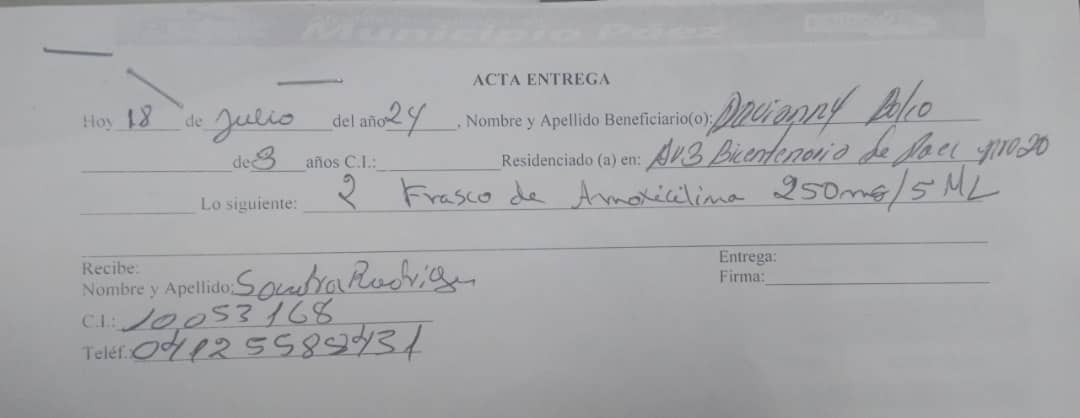 Municipio Páez
ACTA ENTREGA
Hoy 18 de Julio del año 24, Nombre y Apellido Beneficiario(o): Davianny Polio
de 3 años C.I.: Residenciado (a) en: Av3 Bicentenario de Paez nro 20
Lo siguiente: 2 Frasco de Amoxicilina 250mg/5 ML
Recibe:
Entrega:
Nombre y Apellido: Sandra Rodrigez
Firma:
C.I.: 10,053168
Teléf.: 0412